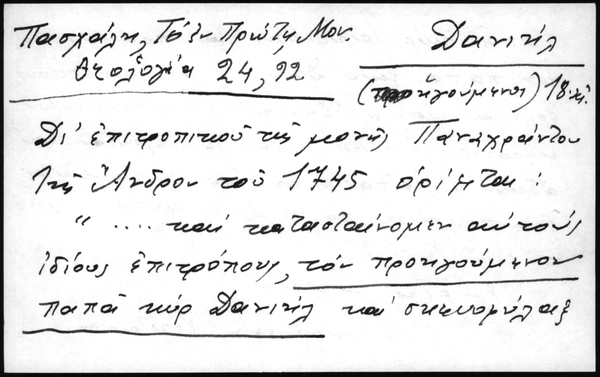 Πασχάλη, Τὸ ἐν Πρώτῃ Μον.
Θεολογία 24, 92
Δανιήλ
(ἡγούμενος) 18 αἰ.
Δι' ἐπιτροπικοῦ τῆς μονῆς Παναχράντου
τῆς Ἄνδρου τοῦ 1745 ὁρίζεται :
" .... καὶ κατασταίνομεν αὐτοὺς
ἰδίους ἐπιτρόπους, τὸν προηγούμενον
παπᾶ κὺρ Δανιὴλ καὶ σκευοφύλαξ